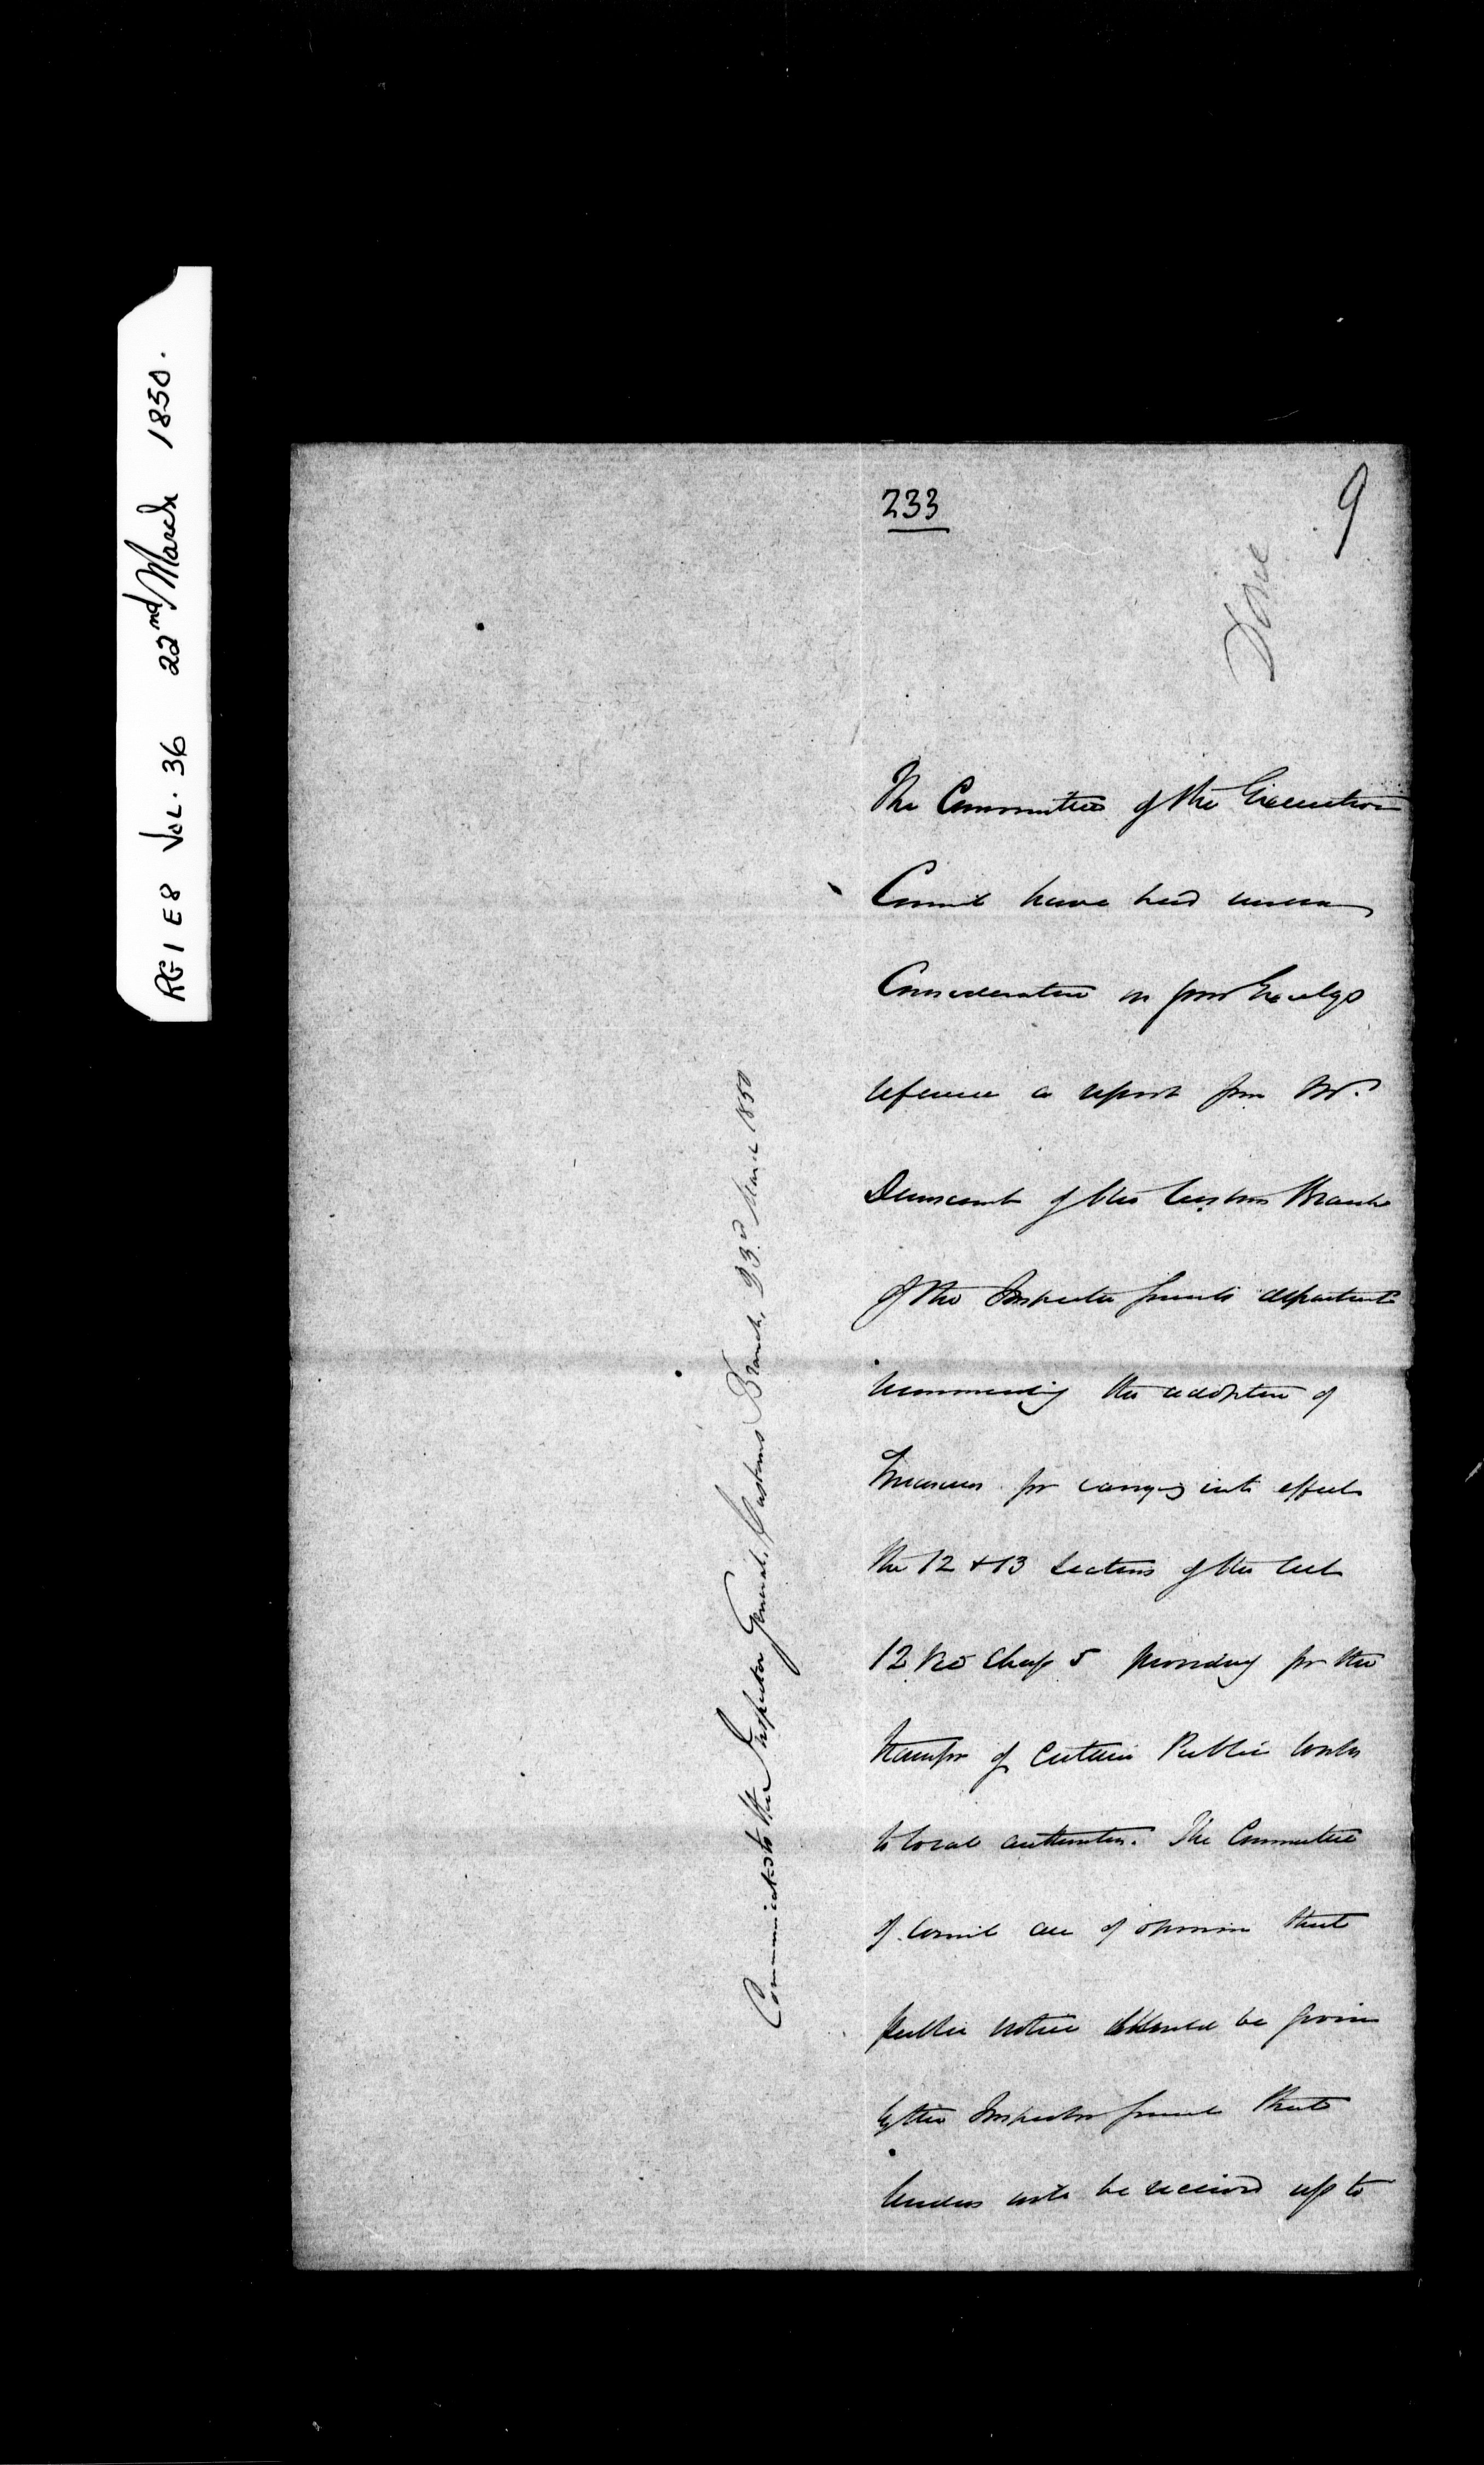 RG1 E8 Vol. 36 22nd March 1850.
233
9
Done
The Committee of the Executive
Council have had under
Consideration on your Excellys
reference a report from Mr.
Dunscomb of the Customs Branch
of the Inspector Generals department
recommending the adoption of
measures for carrying into effect
the 12 & 13 sections of the Act
12 Vic Chap 5 providing for the
transfer of certain Public Works
to local authorities. The Committee
of Council are of opinion that
public notice should be given
by the Inspector General that
tenders will be received up to
Communicated to the Inspector General, Customs Branch, 23rd March 1850